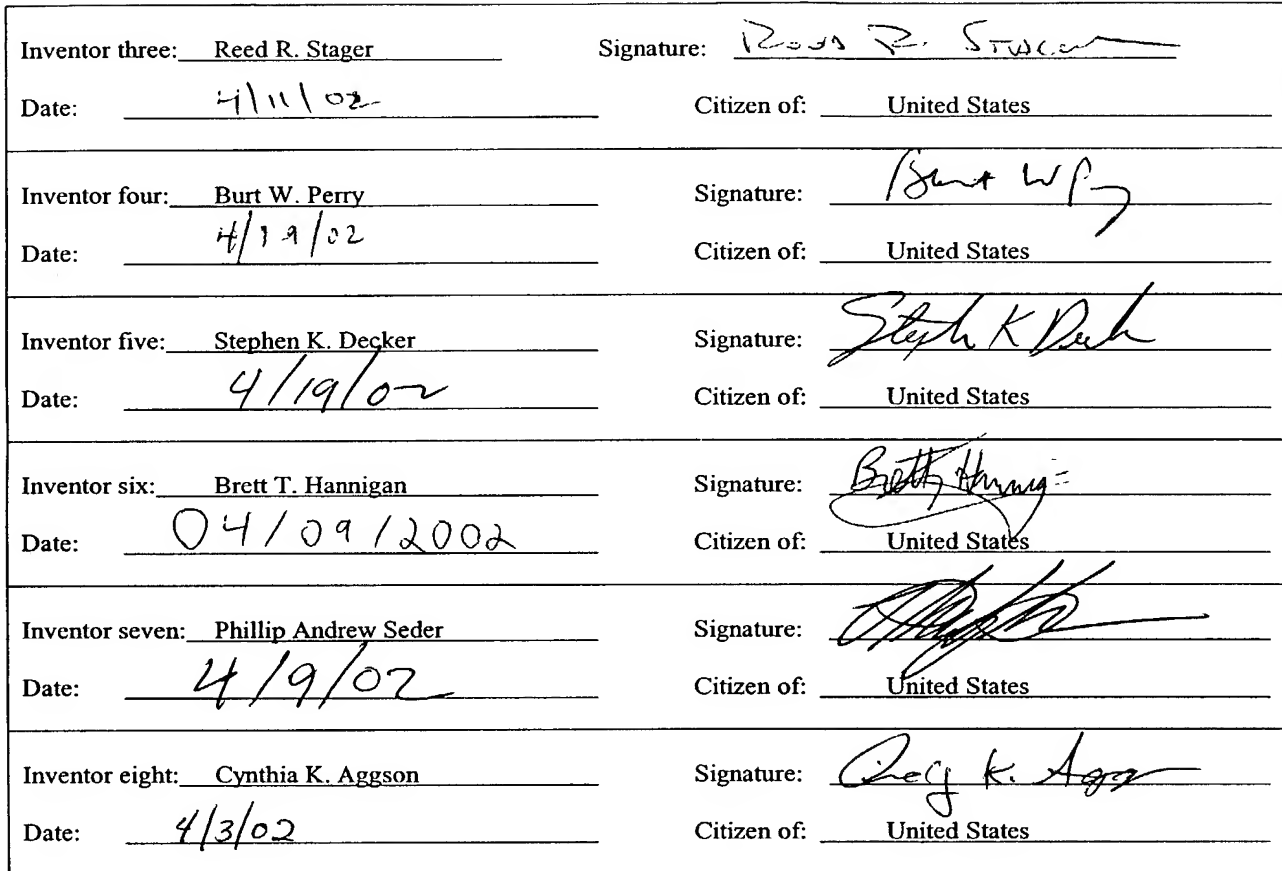 Inventor three: Reed R. Stager Signature: Reed R. Stager
Date: 4/11/02 Citizen of: United States
Inventor four: Burt W. Perry Signature: Burt W P
Date: 4/19/02 Citizen of: United States
Inventor five: Stephen K. Decker Signature: Steph K Deck
Date: 4/19/02 Citizen of: United States
Inventor six: Brett T. Hannigan Signature: Brett Hannig
Date: 04/09/2002 Citizen of: United States
Inventor seven: Phillip Andrew Seder Signature:
Date: 4/9/02 Citizen of: United States
Inventor eight: Cynthia K. Aggson Signature: K. Agg
Date: 4/3/02 Citizen of: United States